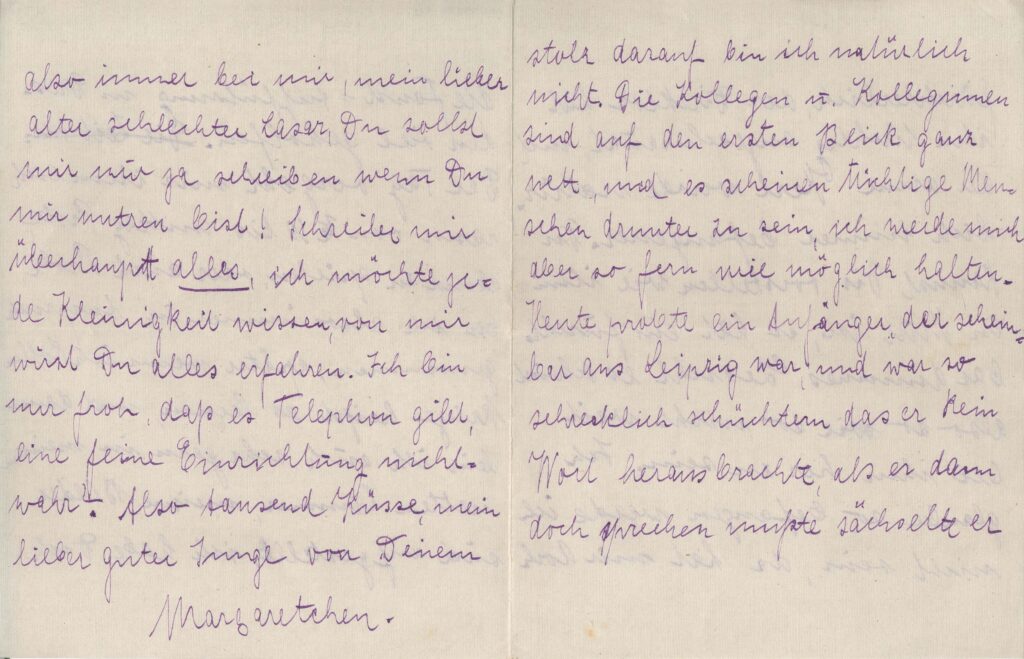 also immer bei mir, mein lieber
alter schlechter Casar, Du sollst
mir nur ja schreiben wenn Du
mir untreu bist! Schreibe mir
überhaupt alles, ich möchte je-
de Kleinigkeit wissen, von mir
wirst Du alles erfahren. Ich bin
nur froh, daß es Telephon gibt,
eine feine Einrichtung nicht-
wahr? Also tausend Küsse, mein
lieber guter Junge von Deinem
Margaretchen.
stolz darauf bin ich natürlich
nicht. Die Kollegen u. Kolleginnen
sind auf den ersten Blick ganz
nett, und es scheinen tüchtige Men-
schen drunter zu sein, ich werde mich
aber so fern wie möglich halten.
Heute probte ein Anfänger, der schein-
bar aus Leipzig war und war so
schrecklich schüchtern das er kein
Wort herausbrachte, als er dann
doch sprechen mußte sächselte er